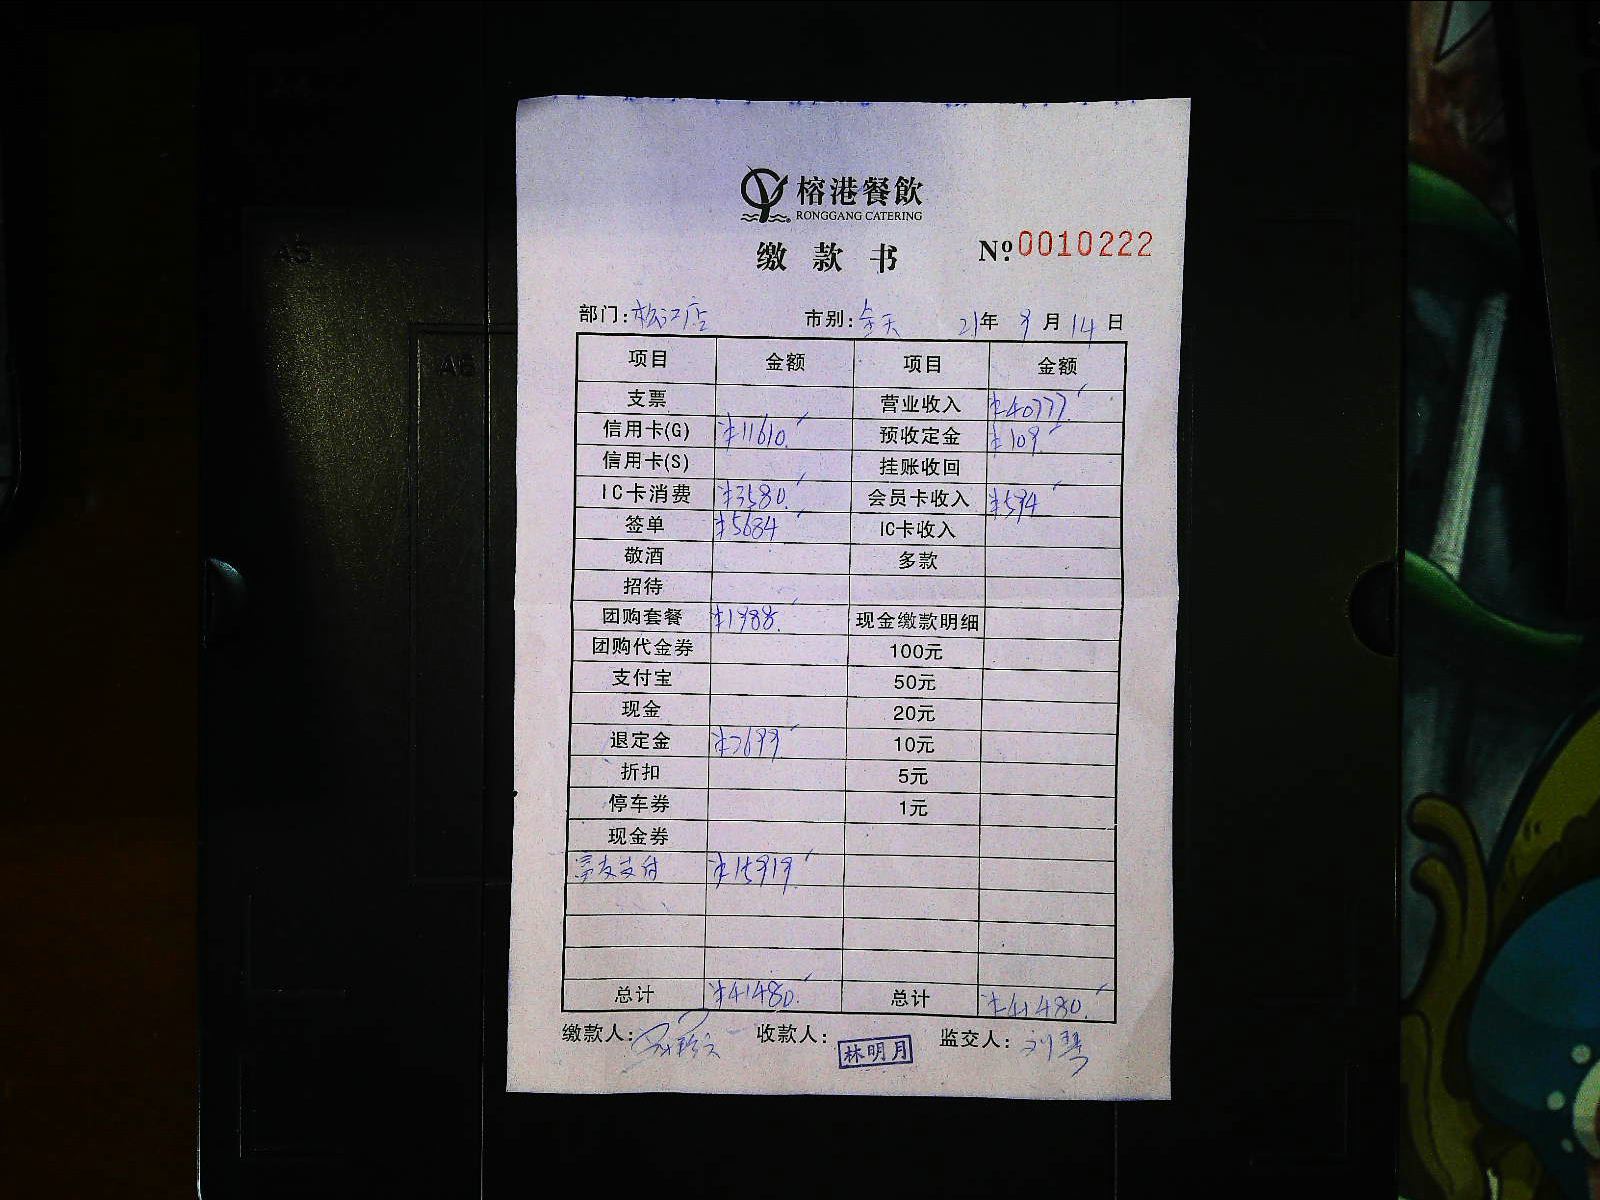 榕港餐飲
RONGGANG CATERING
缴款书 Nº 0010222
部门:松江店 市别:全天 21年 9月14日
项目 金额 项目 金额
支票 营业收入 ¥40777.
信用卡(G) ¥11610. 预收定金 ¥109.
信用卡(S) 挂账收回
IC卡消费 ¥3580. 会员卡收入 ¥594
签单 ¥5684 IC卡收入
敬酒 多款
招待
团购套餐 ¥1988. 现金缴款明细
团购代金券 100元
支付宝 50元
现金 20元
退定金 ¥2699. 10元
折扣 5元
停车券 1元
现金券
支付 ¥15919.
总计 ¥41480. 总计 ¥41480.
缴款人: 收款人: 林明月 监交人: 刘
A5
A6